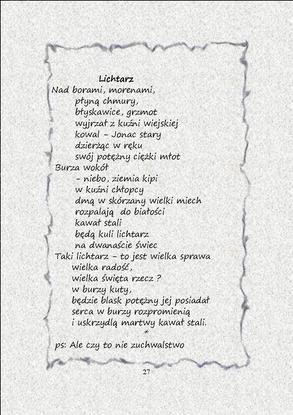 Lichtarz
Nad borami, morenami,
płyną chmury,
błyskawice, grzmot
wyjrzał z kuźni wiejskiej
kowal - Jonac stary
dzierżąc w ręku
swój potężny ciężki młot
Burza wokół
- niebo, ziemia kipi
w kuźni chłopcy
dmą w skórzany wielki miech
rozpalają do białości
kawał stali
będą kuli lichtarz
na dwanaście świec
Taki lichtarz - to jest wielka sprawa
wielka radość,
wielka święta rzecz ?
w burzy kuty,
będzie blask potężny jej posiadał
serca w burzy rozpromienią
i uskrzydlą martwy kawał stali.
ps: Ale czy to nie zuchwalstwo
27